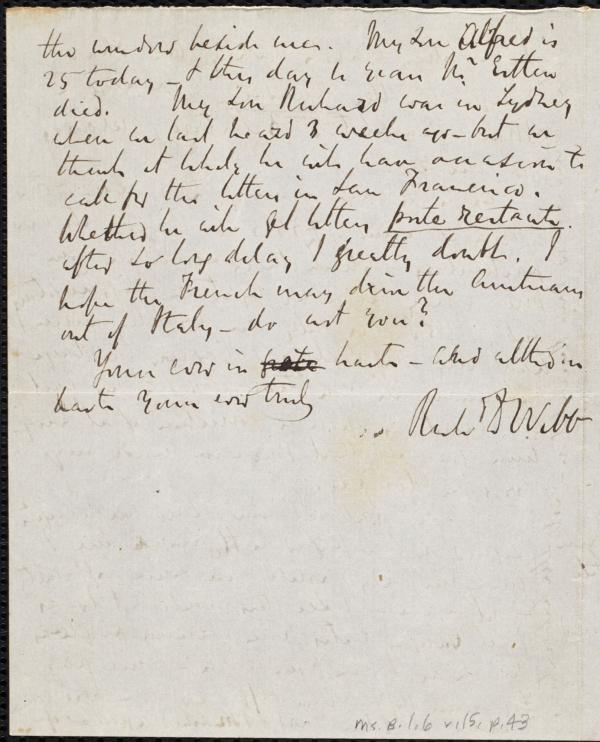 the window beside me. My son Alfred is
25 today – & this day 12 years Mr. Estlin
died. My son Richard was in Sydney
when we last heard 3 weeks ago – but we
think it likely he will have occasion to
call for the letters in San Francisco.
Whether he will get letters poste restante
after so long delay I greatly doubt. I
hope the French may drive the Austrians
out of Italy – do not you?
Yours ever in haste – and altho' in
haste yours ever truly
Richd D Webb
Ms. B. 1.6 v.15, p.43